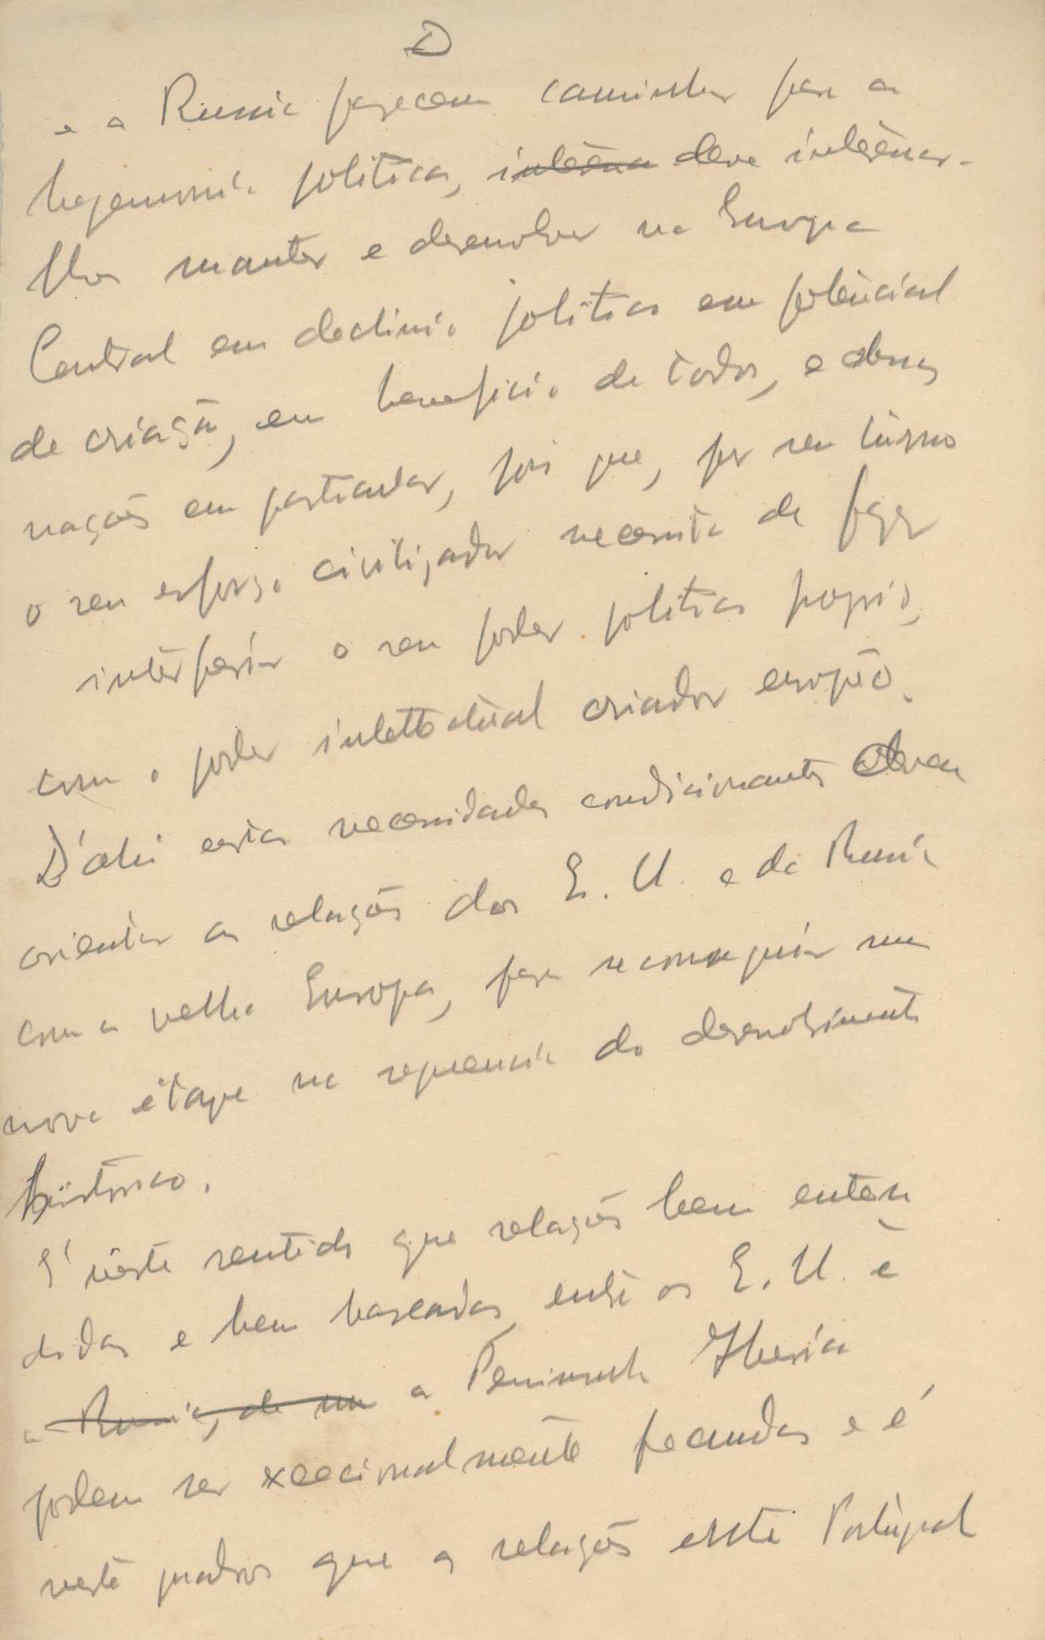 D
e a Russia parecem caminhar para a
hegemonia politica, interessa deve interessar-
lhes manter e desenvolver na Europa
Central em declinio politico um potencial
de criação, em beneficio de todos, e dessas
nações em particular, pois que, por seu turno
o seu esforço civilizador necessita de fazer
interferir o seu poder politico proprio,
com o poder intelectual criador europeu.
D'ahi estas necessidades condicionantes devem
orientar as relações dos E. U. e da Russia
com a velha Europa, para se conseguir uma
nova étape na sequencia do desenvolvimento
histórico.
E' neste sentido que relações bem enten
didas e bem baseadas, entre os E. U. e
a Russia, de um a Peninsula Iberica
podem ser excecionalmente fecundas e é
neste quadro que as relações entre Portugal